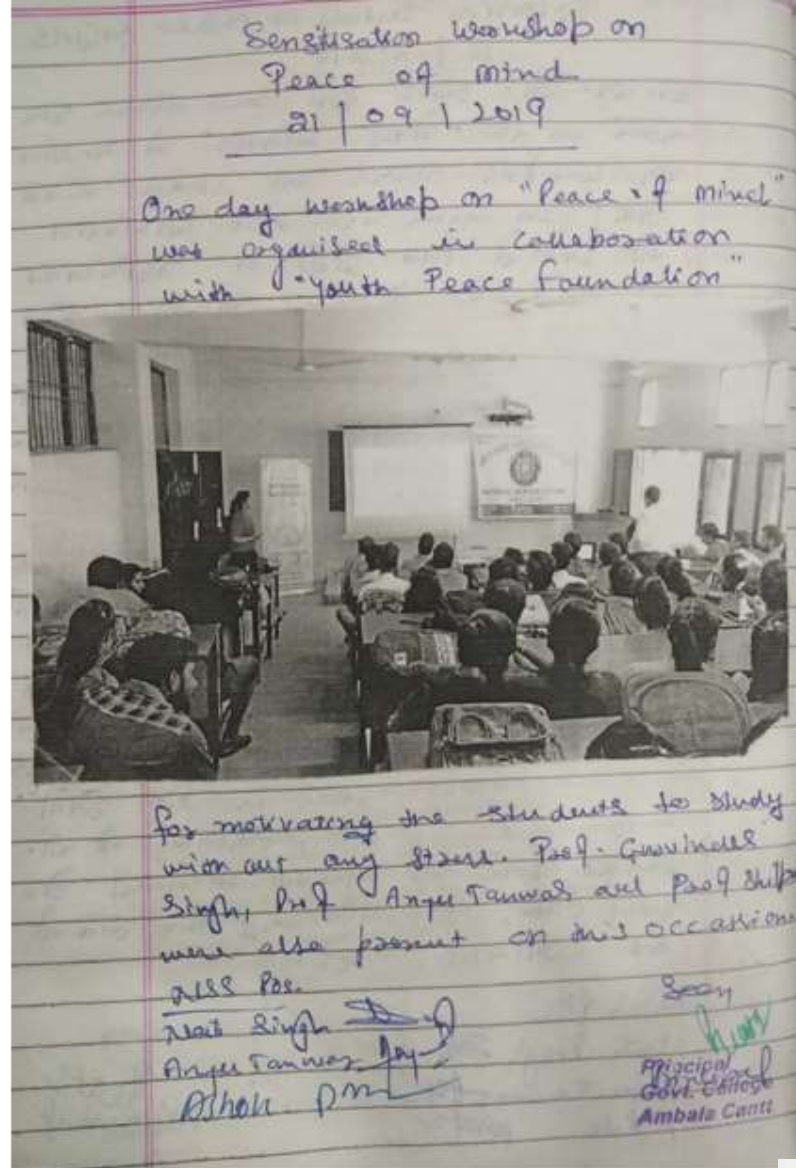 Sensitisation Workshop on
Peace of Mind
21 | 09 | 2019
One day workshop on "Peace of Mind"
was organised in collaboration
with "Youth Peace Foundation"
for motivating the students to study
with out any stress. Prof. Gurvinder
Singh, Prof Anju Tanwar and Prof Shilpa
were also present on this occassion.
NSS POs.
Singh
Anju Tanwar
Ashok
Seen
Principal
Govt. College
Ambala Cantt